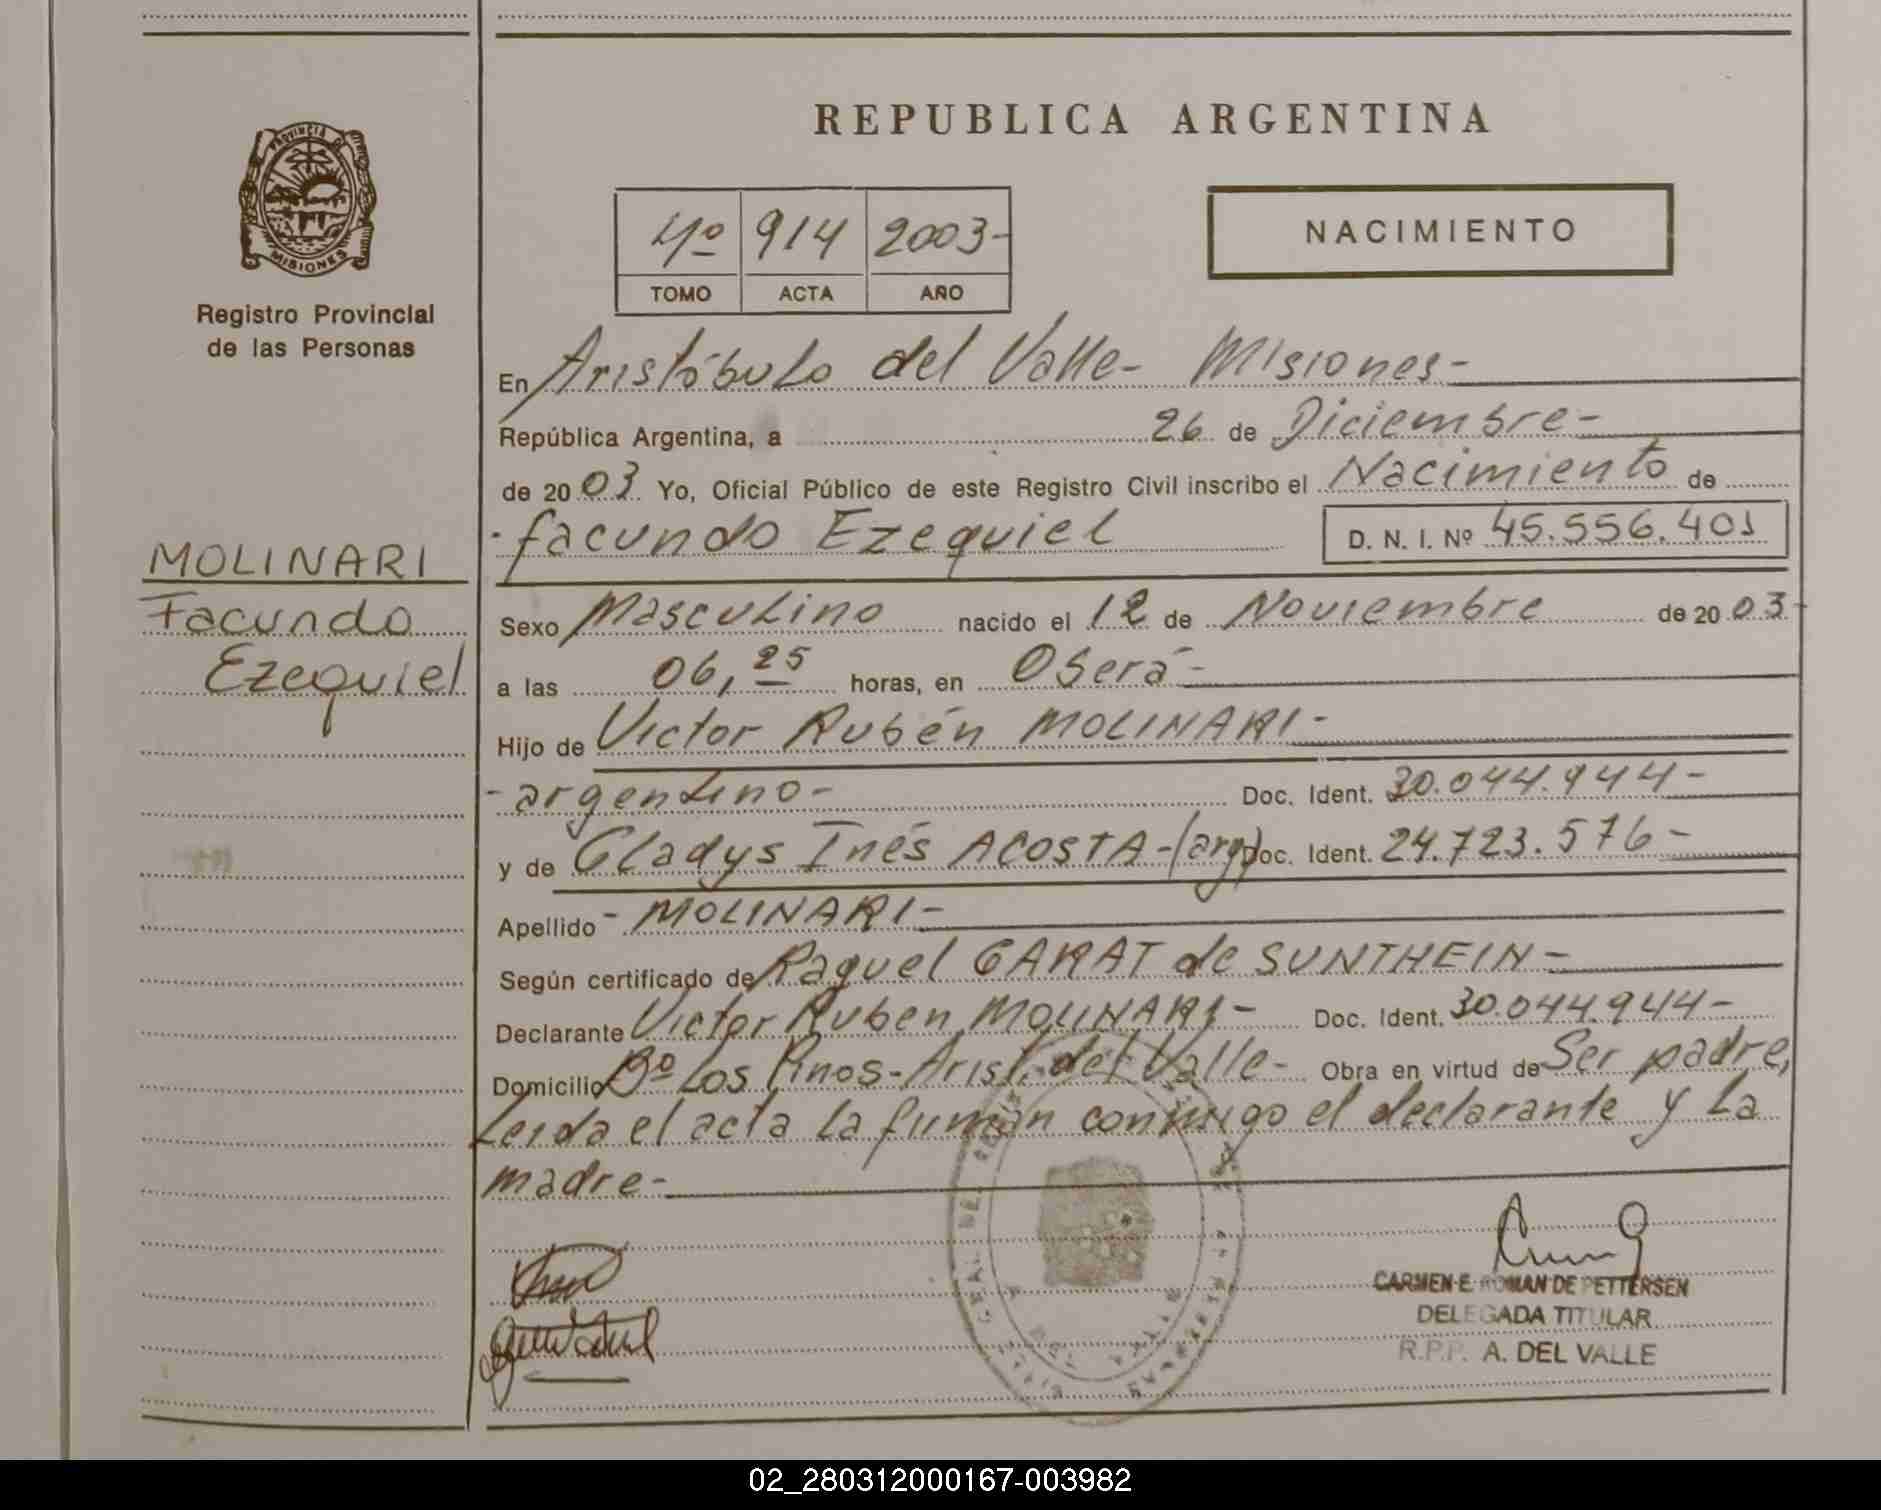 REPUBLICA ARGENTINA
PROVINCIA DE
MISIONES
Registro Provincial
de las Personas
4º 914 2003-
TOMO ACTA AÑO
NACIMIENTO
En Aristóbulo del Valle- Misiones-
República Argentina, a 26 de Diciembre-
de 2003 Yo, Oficial Público de este Registro Civil inscribo el Nacimiento de
-facundo Ezequiel D. N. I. Nº 45.556.401
MOLINARI
Facundo
Ezequiel
Sexo Masculino nacido el 12 de Noviembre de 2003-
a las 06,25 horas, en Oberá-
Hijo de Victor Rubén MOLINARI-
-argentino- Doc. Ident. 30.044.944-
y de Gladys Inés ACOSTA-(arg) Doc. Ident. 24.723.576-
Apellido - MOLINARI-
Según certificado de Raquel GARAT de SUNTHEIN-
Declarante Victor Ruben MOLINARI- Doc. Ident. 30.044.944-
Domicilio Bº Los Pinos-Arist. del Valle- Obra en virtud de Ser padre,
Leida el acta la firman conmigo el declarante y la
madre-
CARMEN E. ROMAN DE PETTERSEN
DELEGADA TITULAR
R.P.P. A. DEL VALLE
02_280312000167-003982